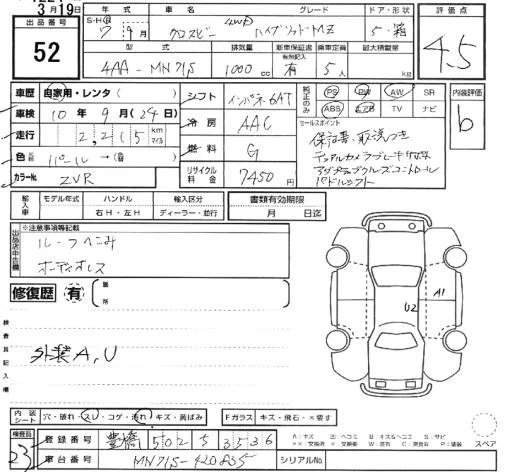 3月19日
出品番号
52
年式 車名 グレード ドア・形状
S・H・R 7年9月 クロスビー 4WD ハイブリッドMZ 5・箱
型式 排気量 新車保証書 有無記入 乗車定員 最大積載量
4AA-MN71S 1000cc 有 5人 kg
評価点
4.5
車歴 自家用・レンタ( )
車検 10年9月(24日)
走行 2,215 km マイル
色 パール→( )
カラーNo. ZVR
シフト インパネ6AT
冷房 AAC
燃料 G
リサイクル料金 7450円
純正のみ PS PW AW SR
ABS エアB TV ナビ
内装評価
b
セールスポイント
保証書、取説つき
デュアルカメラブレーキサポート
アダプティブクルーズコントロール
パドルシフト
輸入車 モデル年式 ハンドル 輸入区分
右H・左H ディーラー・並行
書類有効期限
月 日迄
出品店申告欄
※注意事項等記載
ルーフへこみ
オーディオレス
修復歴 有 ( 箇所
検査員記入欄
外装A,U
U2
A1
内装シート 穴・破れ・スレ・コゲ・汚れ・キズ・黄ばみ
Fガラス キズ・飛石・×要す
スペア
検査員
23
登録番号 豊橋 502 5 3536
車台番号 MN71S-420835
シリアルNo.
A:キズ U:ヘコミ B:キズ&ヘコミ S:サビ